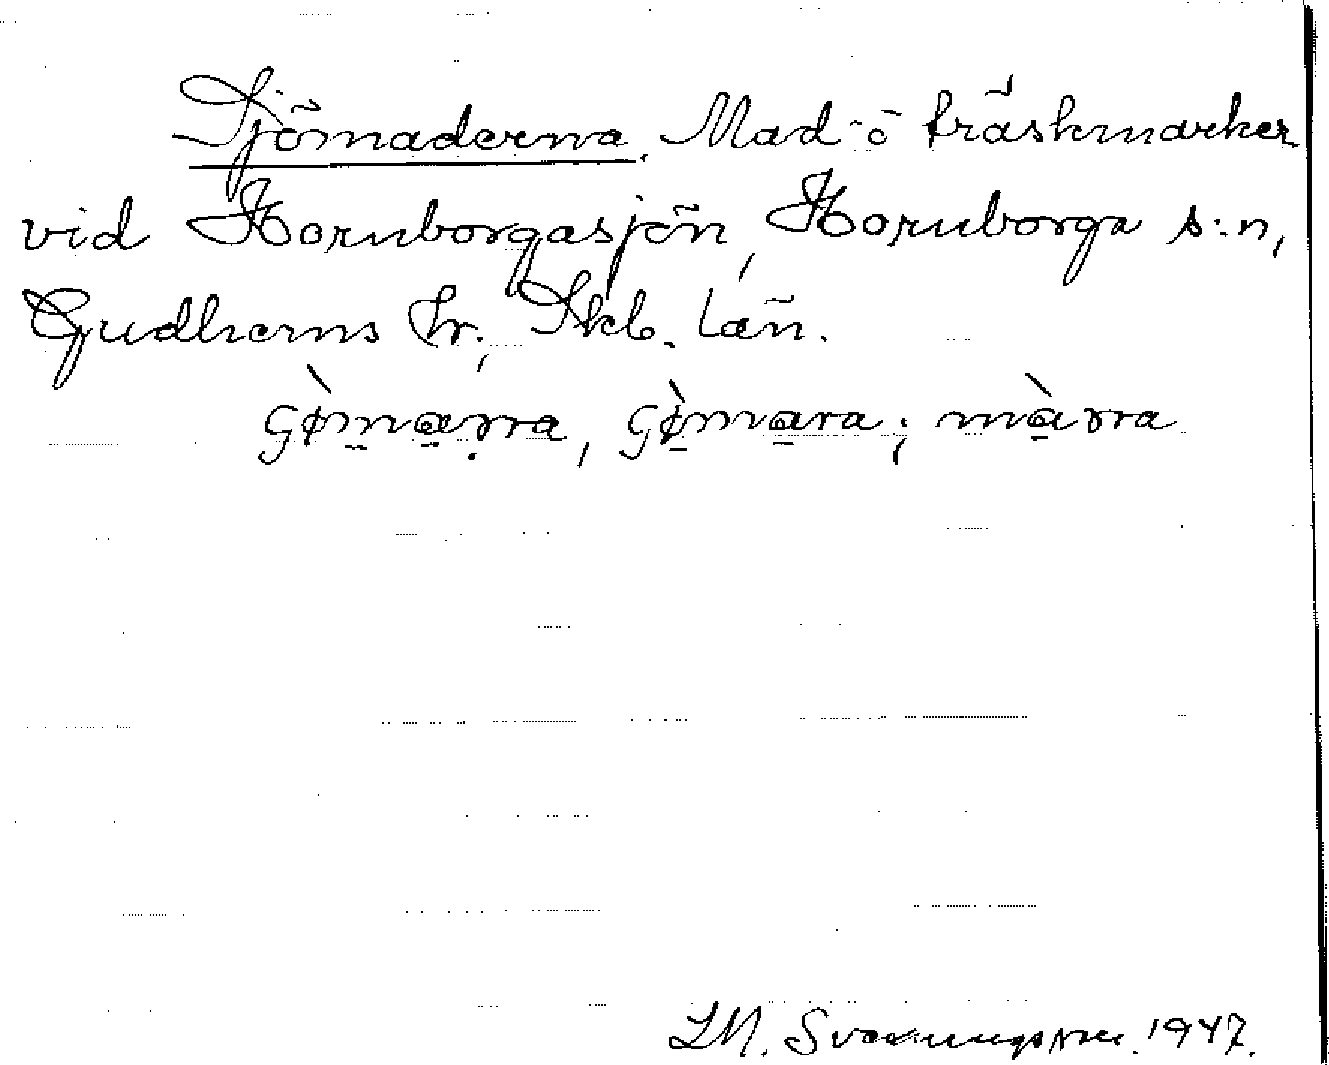 Sjömaderna. Mad- o träskmarker
vid Hornborgasjön, Hornborga s:n,
Gudhems hr., Skb. län.
ɢø̀mar̥ra, ɢø̀mara; màrra
L.M. Svenungsson. 1947.